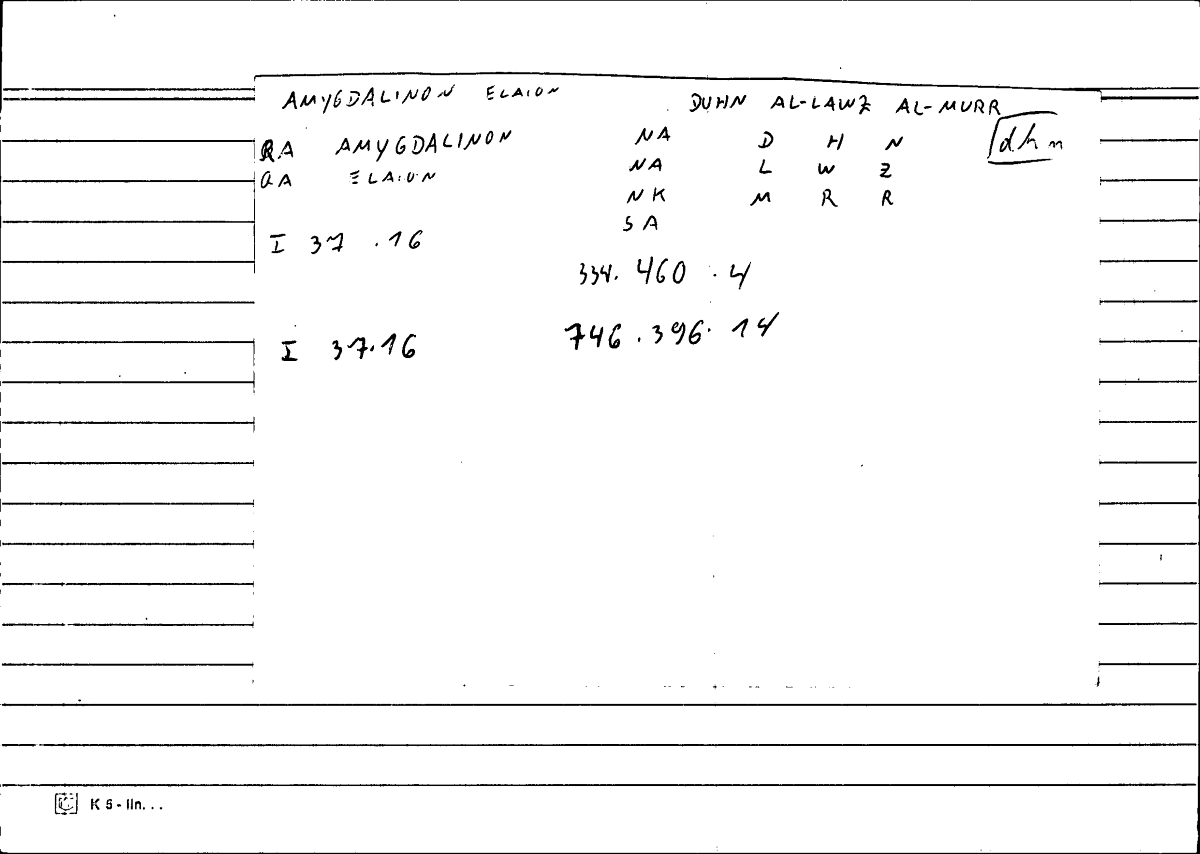 AMYGDALINON ELAION DUHN AL-LAWZ AL-MURR
RA AMYGDALINON NA D H N dhn
QA ELAION NA L W Z
NK M R R
SA
I 37 .16
334. 460 . 4
I 37.16 746 . 396. 14
K 5 - lin. . .